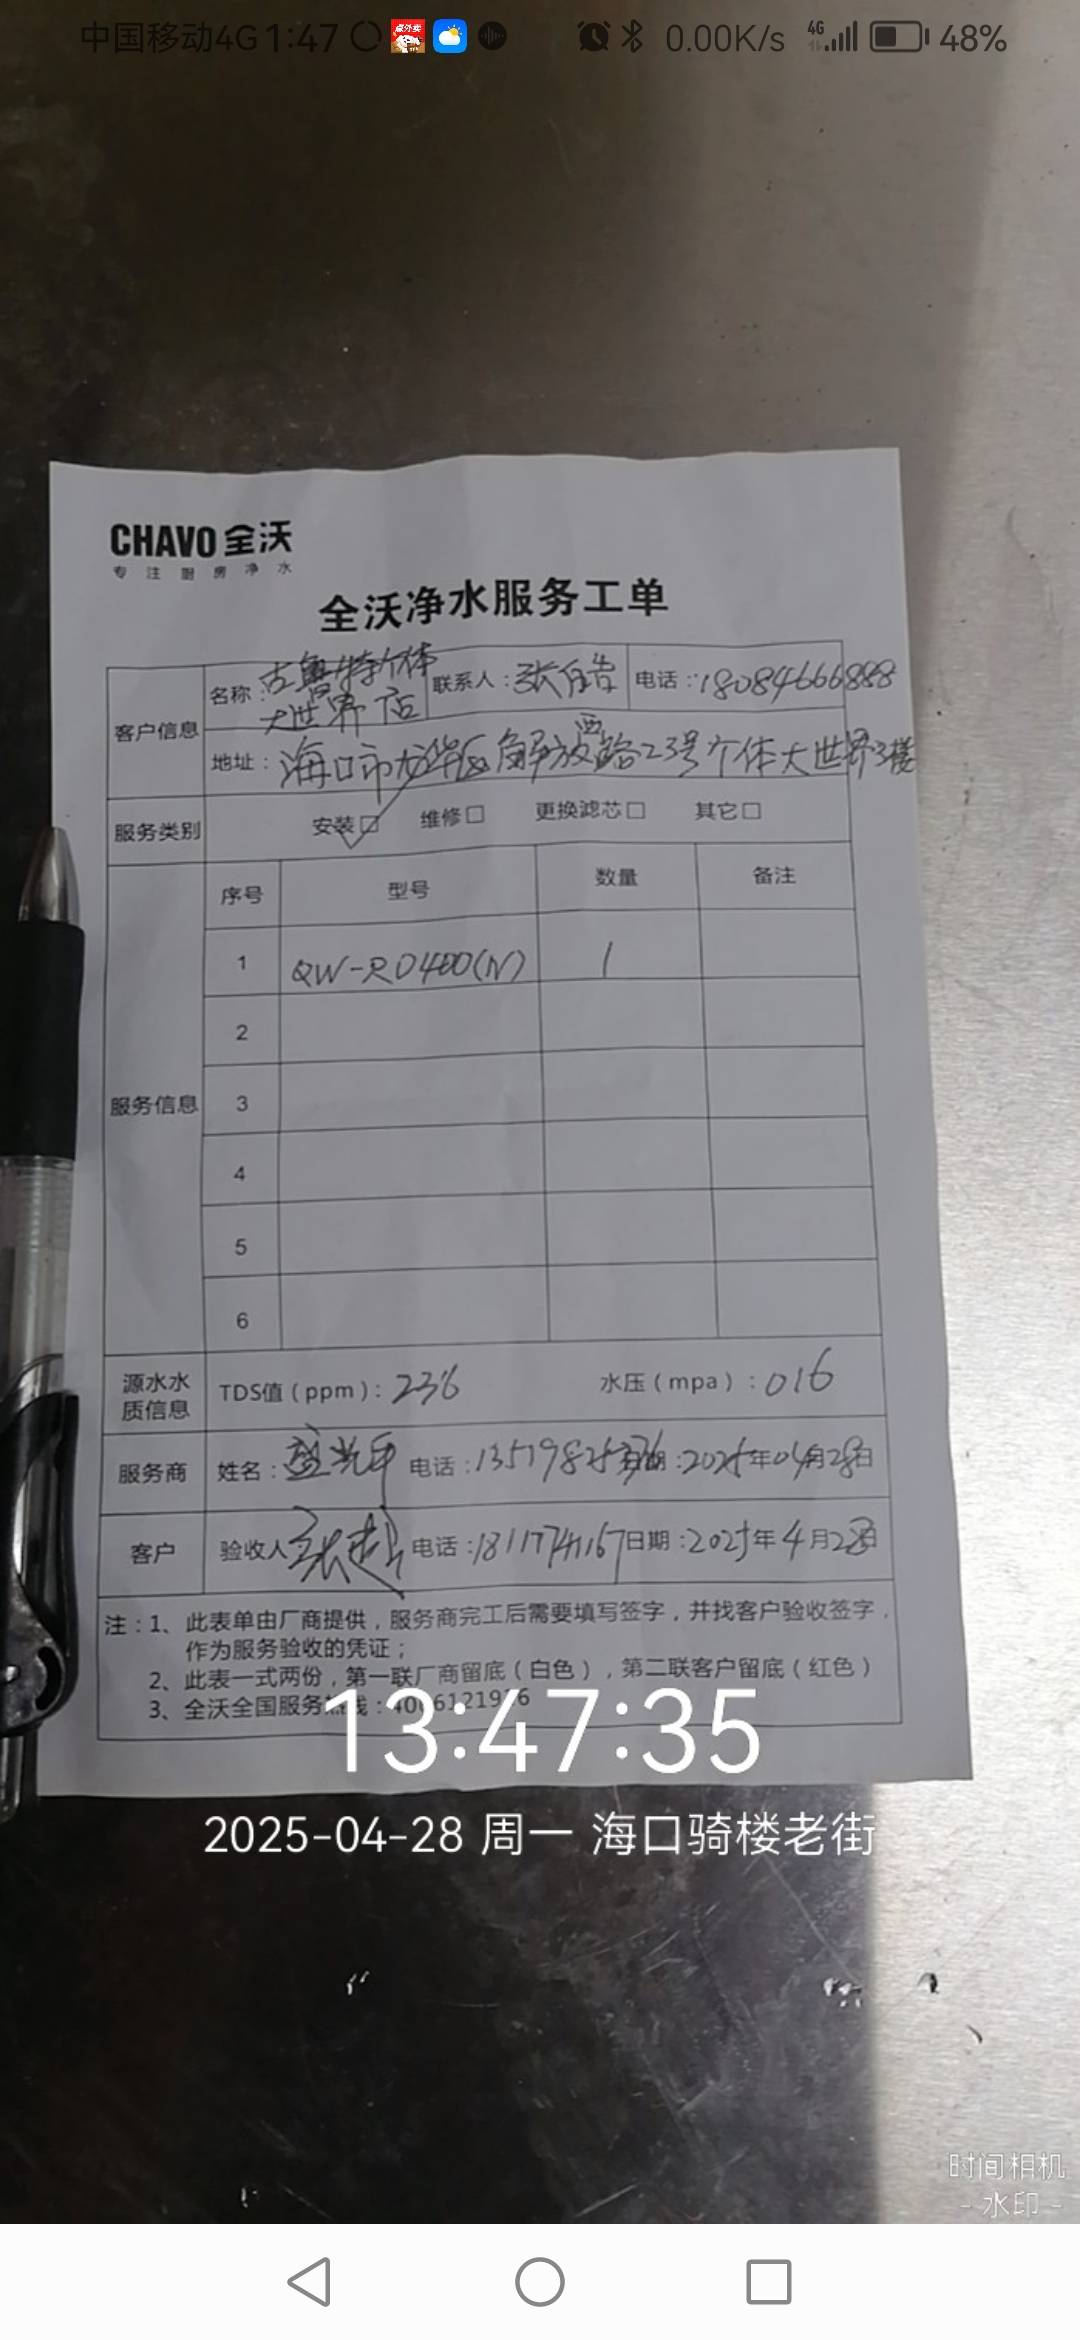 中国移动4G 1:47 0.00K/s 4G 48%
CHAVO 全沃
专注厨房净水
全沃净水服务工单
客户信息 名称：古鲁特个体大世界店 联系人：张自浩 电话：18084666888
地址：海口市龙华区解放西路23号个体大世界3楼
服务类别 安装 维修 更换滤芯 其它
序号 型号 数量 备注
1 QW-RO400(N) 1
2
服务信息 3
4
5
6
源水水质信息 TDS值（ppm）：236 水压（mpa）：016
服务商 姓名：盛 电话： 日期：2025年04月28日
客户 验收人 电话： 日期：2025年4月28日
注：1、此表单由厂商提供，服务商完工后需要填写签字，并找客户验收签字，
作为服务验收的凭证；
2、此表一式两份，第一联厂商留底（白色），第二联客户留底（红色）
3、全沃全国服务热线：
13:47:35
2025-04-28 周一 海口骑楼老街
时间相机
-水印-